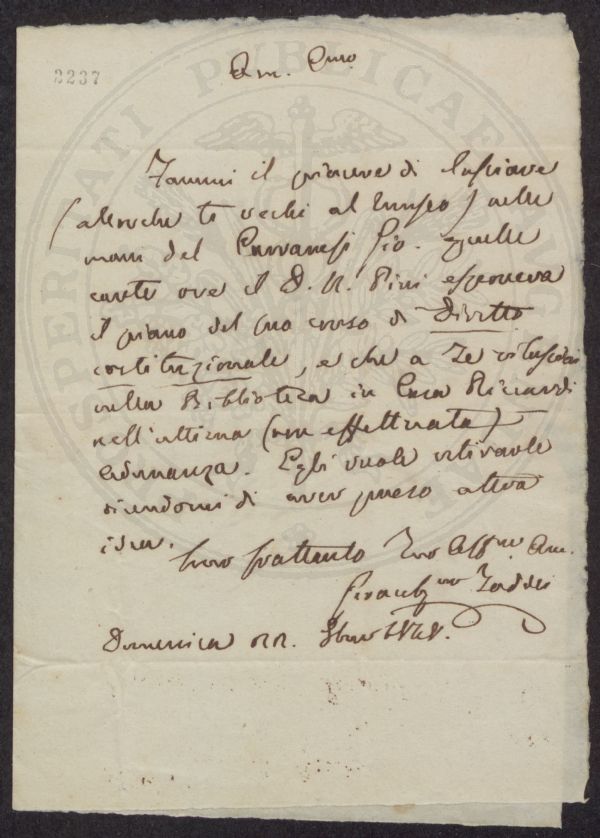 2237
Am. Cmo
Fammi il piacere di lasciare
(allorché te vechi al Museo) nelle
mani del Gio. quelle
carte ove il D. R. Pini esponeva
il piano del suo corso di Diritto
costituzionale, e che a Te rilasciai
nella Biblioteca in Casa Riccardi
nell'ultima (non effettuata)
Adunanza. Egli vuole ritirarle
dicendomi di aver preso altra
idea.
Sono frattanto Tuo Aff.mo Am.
Taddei
Domenica 22. 8bre 1848.
PUBLICAE